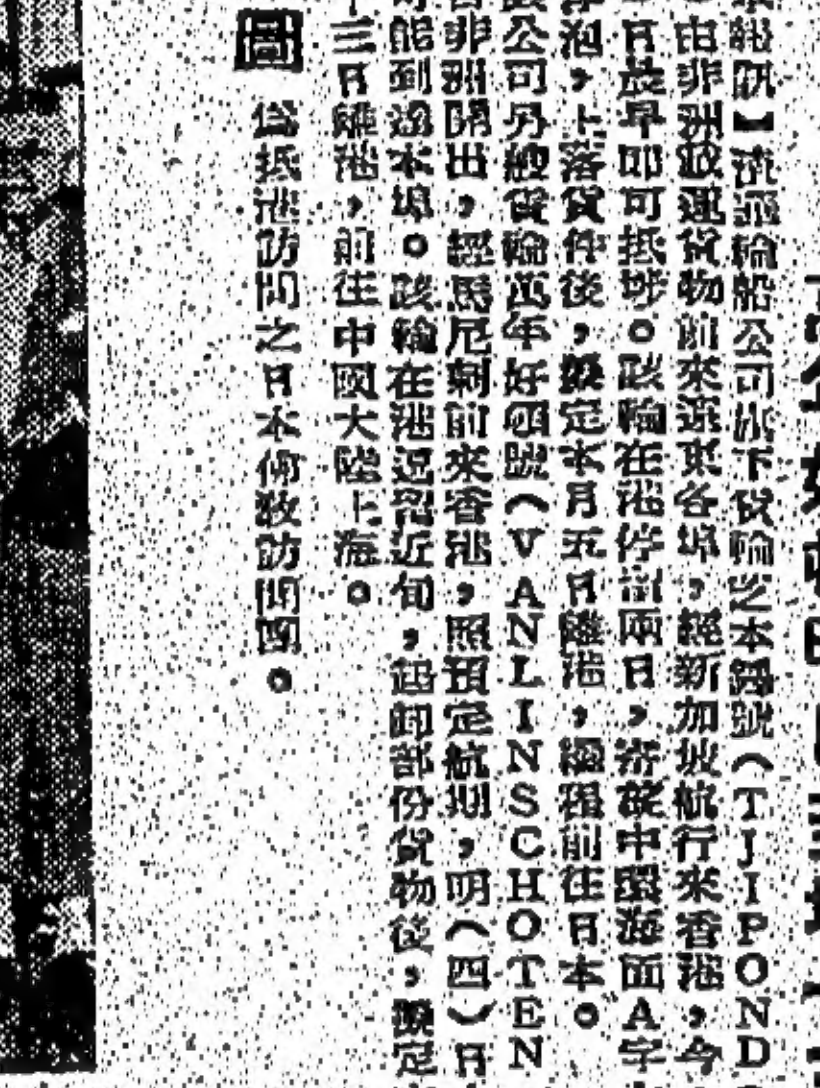 報訊】渣華輪船公司旗下貨輪芝本號（TJIPOND
由非洲返運貨物前來遠東各埠，經新加坡航行來香港，今
日於早即可抵埗。該輪在港停留兩日，寄碇中環海面A字
浮泡，上落貨件後，擬定本月五日離港，續程前往日本。
公司另艘貨輪萬年好四號（VANLINSCHOTEN
非洲開出，經馬尼剌前來香港，照預定航期，明（四）日
可能到達本埠。該輪在港逗留近旬，起卸部份貨物後，擬定
十三日離港，前往中國大陸上海。
圖為抵港訪問之日本佛教訪問團。